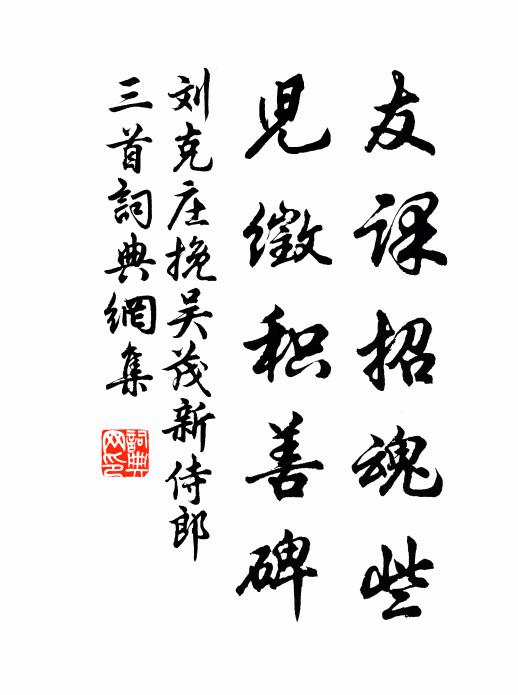 友课招魂些
兒徵积善碑
刘克庄挽吴茂新侍郎
三首詞典網集
詞典网印